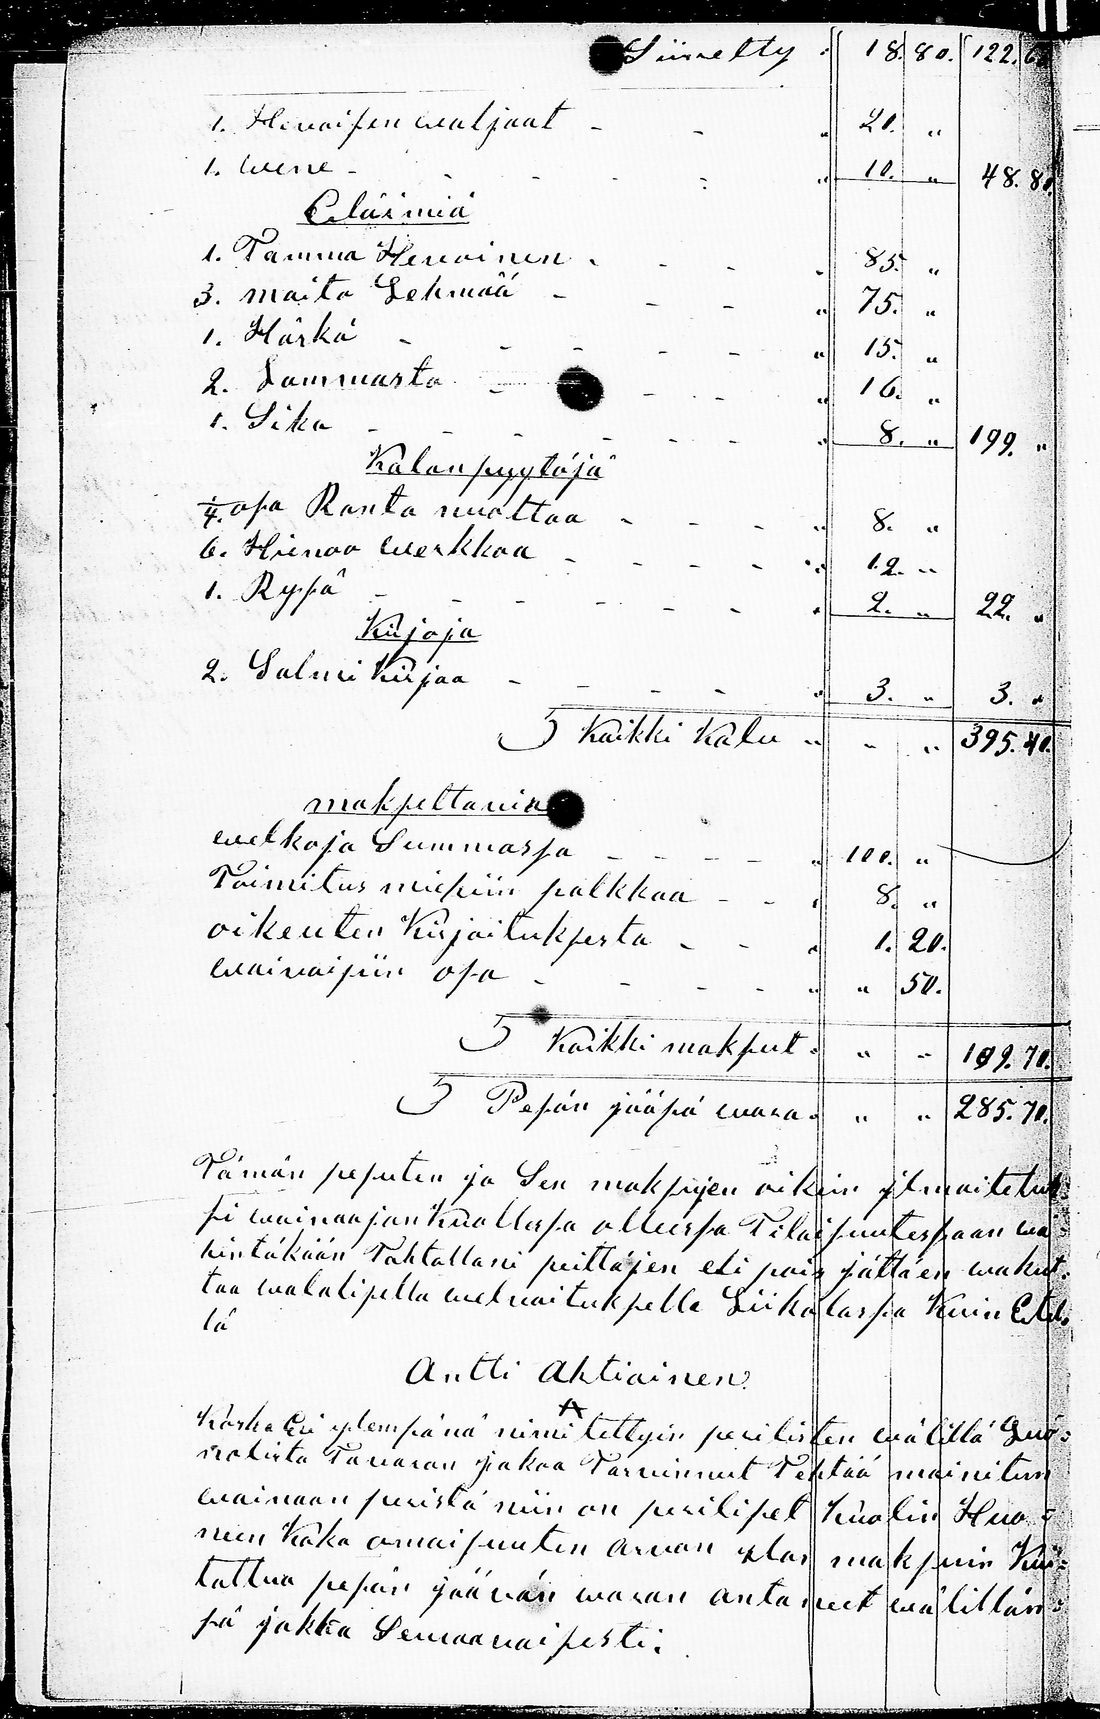 Siirretty " 18. 80. 122. 6
1. Hevoisen waljaat - - " 20. "
1. wene - - - - - " 10. " 48. 80
Eläimiä
1. Tamma Hevoinen - - - " 85. "
3. maito Lehmää - - - " 75. "
1. Härkä - - - - - " 15. "
2. Lammasta - - - " 16. "
1. Sika - - - - - - " 8. " 199. "
Kalanpyytöjä
1/4. osa Ranta nuottaa - - - " 8. "
6. Hienoo werkkoa - - - - " 12. "
1. Rysä - - - - - - " 2. " 22. "
Kirjoja
2. Salmi Kirjaa - - - - " 3. " 3. "
S Kaikki Kalu " " " 395. 40.
maksettavia
welkoja Summassa - - - - " 100. "
Toimitus miesiin palkkaa - - " 8. "
oikeuten Kirjoituksesta - - " 1. 20.
waivaisiin osa - - - - " " 50.
S Kaikki maksut " " " 109. 70.
S Pesän jääpä wara " " " 285. 70.
Tämän pesuten ja Sen maksujen oikein ilmoitetuk-
si wainaajan Kuollessa ollessa Tilaisuutessaan wa-
hintäkään Tahtallani peittäjen eli pois jättäen wakut-
taa walalisella welwoituksella Liikalassa Kuin Etel-
lä
Antti Ahtiainen
Koska Eri ylempänä nimitettyin perilisten wälillä Luo-
walista Tawaran jakoa Tarvinnut Tehtää mainitun
wainaan peristä niin on perilipet Kuolin Huo-
neen Koko omaisuuten arwan ylös maksuin Kui-
tattua pesän jäävän waran antaneet wälillän-
sä jakka Seuraawaisesti: